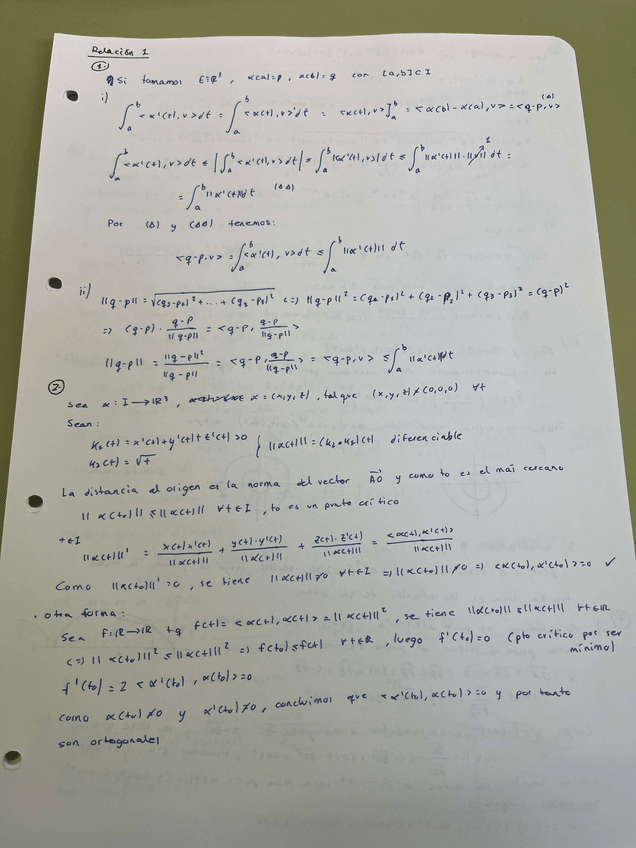 Relación 1
1.
Si tomamos E=ℝ³, α(a)=p, α(b)=q con [a,b]⊂I
i)
∫ₐᵇ <α'(t),v>dt = ∫ₐᵇ <α(t),v>'dt = <α(t),v>]ₐᵇ = <α(b)-α(a),v> = <q-p,v> (Δ)
∫ₐᵇ <α'(t),v>dt ≤ |∫ₐᵇ <α'(t),v>dt| ≤ ∫ₐᵇ |<α'(t),v>|dt ≤ ∫ₐᵇ ||α'(t)||·||v|| dt = 1
= ∫ₐᵇ ||α'(t)||dt (ΔΔ)
Por (Δ) y (ΔΔ) tenemos:
<q-p,v> = ∫ₐᵇ <α'(t),v>dt ≤ ∫ₐᵇ ||α'(t)|| dt
ii) ||q-p|| = √(q₁-p₁)²+...+(q₃-p₃)² <=> ||q-p||² = (q₁-p₁)²+(q₂-p₂)²+(q₃-p₃)² = (q-p)²
=> (q-p)· q-p/||q-p|| = <q-p, q-p/||q-p||>
||q-p|| = ||q-p||²/||q-p|| = <q-p, q-p/||q-p||> = <q-p,v> ≤ ∫ₐᵇ ||α'(t)||dt
2.
Sea α: I→ℝ³, α=(x,y,z), tal que (x,y,z)≠(0,0,0) ∀t
Sean:
h₂(t) = √t } ||α(t)|| = (h₂∘h₁)(t) diferenciable
La distancia al origen es la norma del vector AO y como to es el más cercano
||α(to)|| ≤ ||α(t)|| ∀t∈I, to es un punto crítico
t∈I
||α(t)||' = x(t)x'(t)/||α(t)|| + y(t)·y'(t)/||α(t)|| + z(t)·z'(t)/||α(t)|| = <α(t),α'(t)>/||α(t)||
Como ||α(to)||'=0, se tiene ||α(t)||≠0 ∀t∈I => ||α(to)||≠0 => <α(to),α'(to)>=0 ✓
· otra forma:
Sea f:ℝ→ℝ tq f(t)= <α(t),α(t)> = ||α(t)||², se tiene ||α(to)||≤||α(t)|| ∀t∈ℝ
<=> ||α(to)||² ≤ ||α(t)||² => f(to)≤f(t) ∀t∈ℝ, luego f'(to)=0 (pto crítico por ser
mínimo)
f'(to) = 2 <α'(to), α(to)>=0
como α(to)≠0 y α'(to)≠0, concluimos que <α'(to),α(to)>=0 y por tanto
son ortogonales